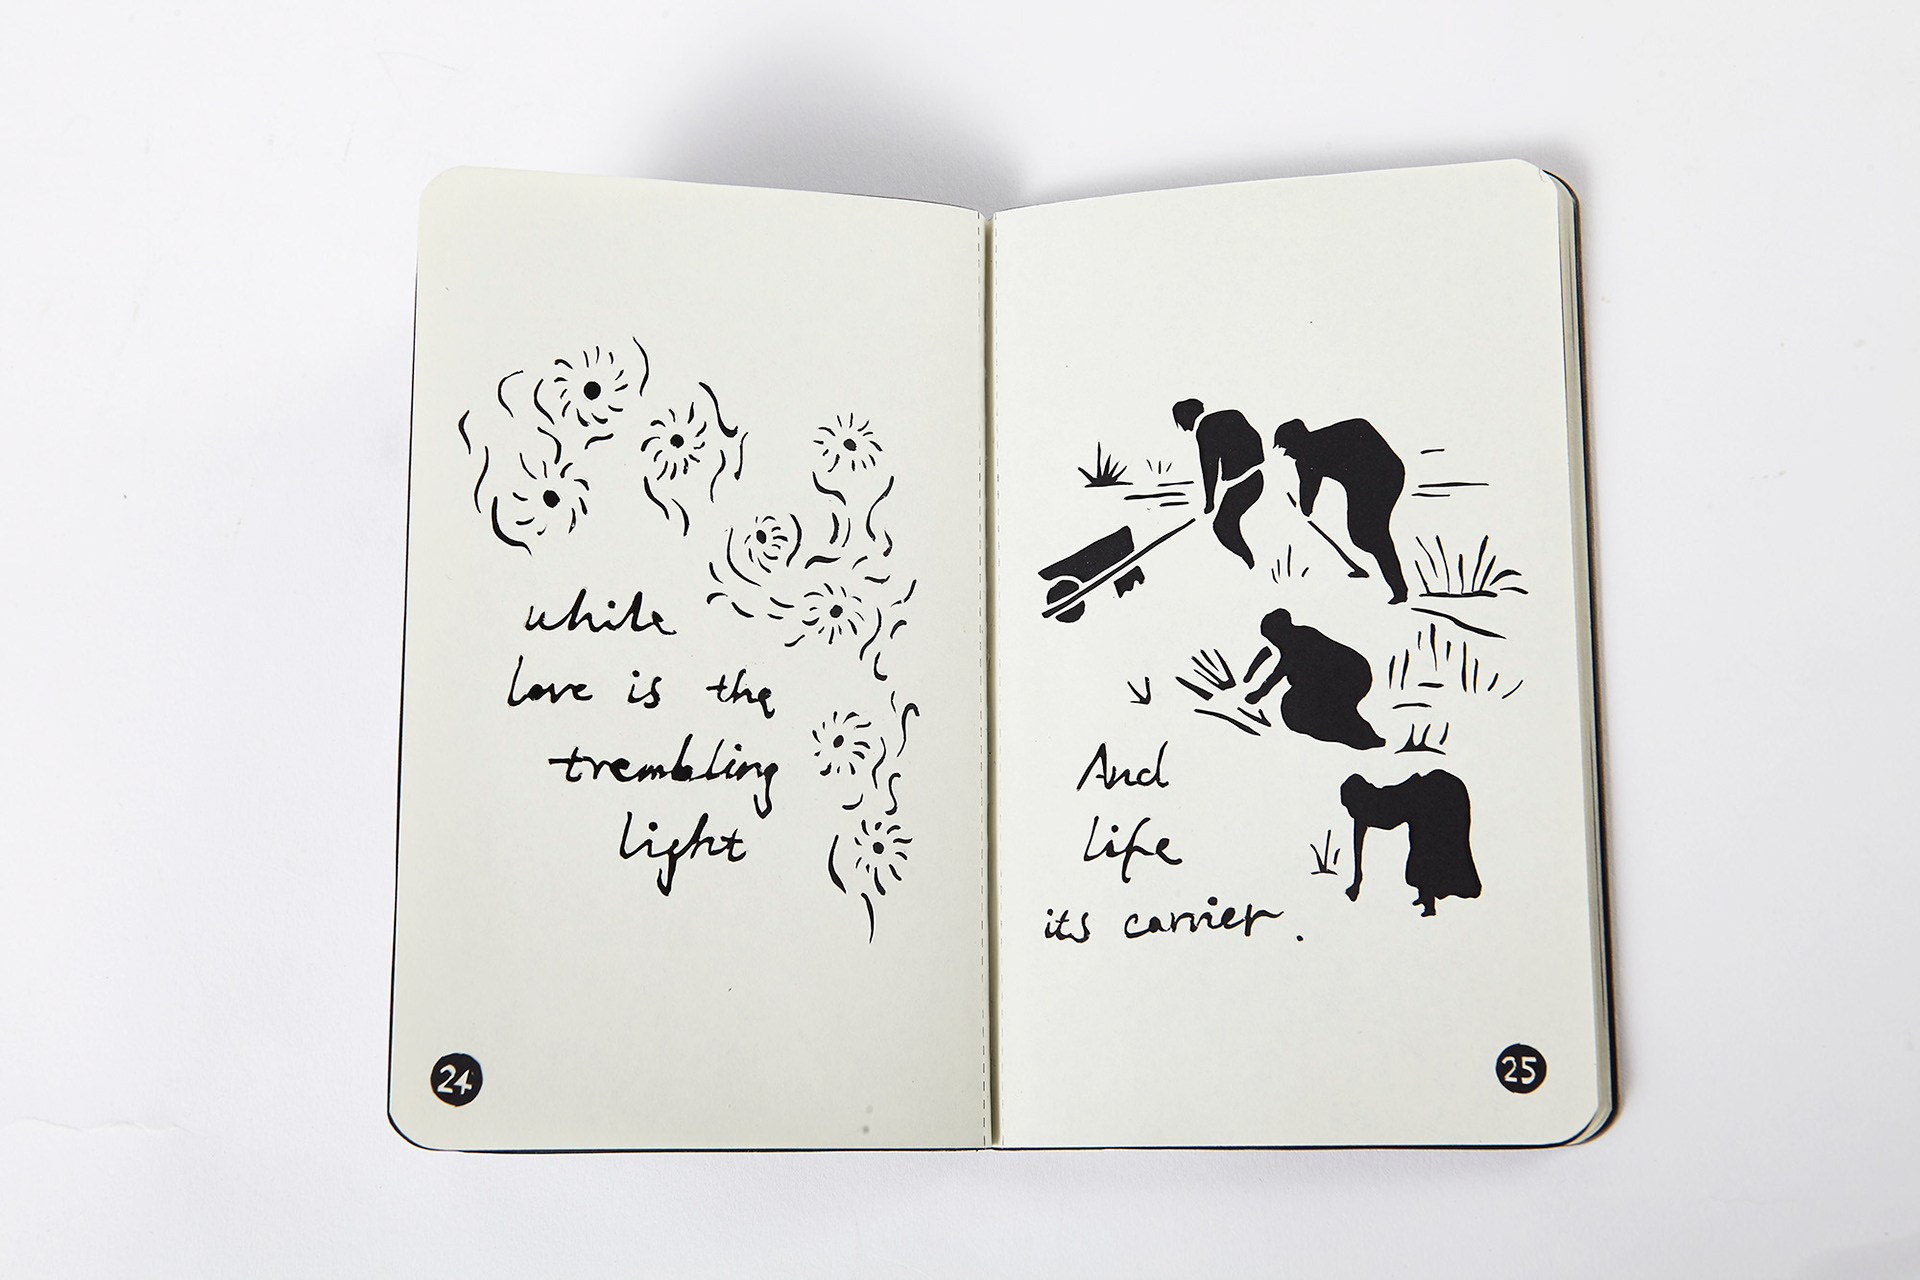 while
love is the
trembling
light
24
And
life
its carrier.
25